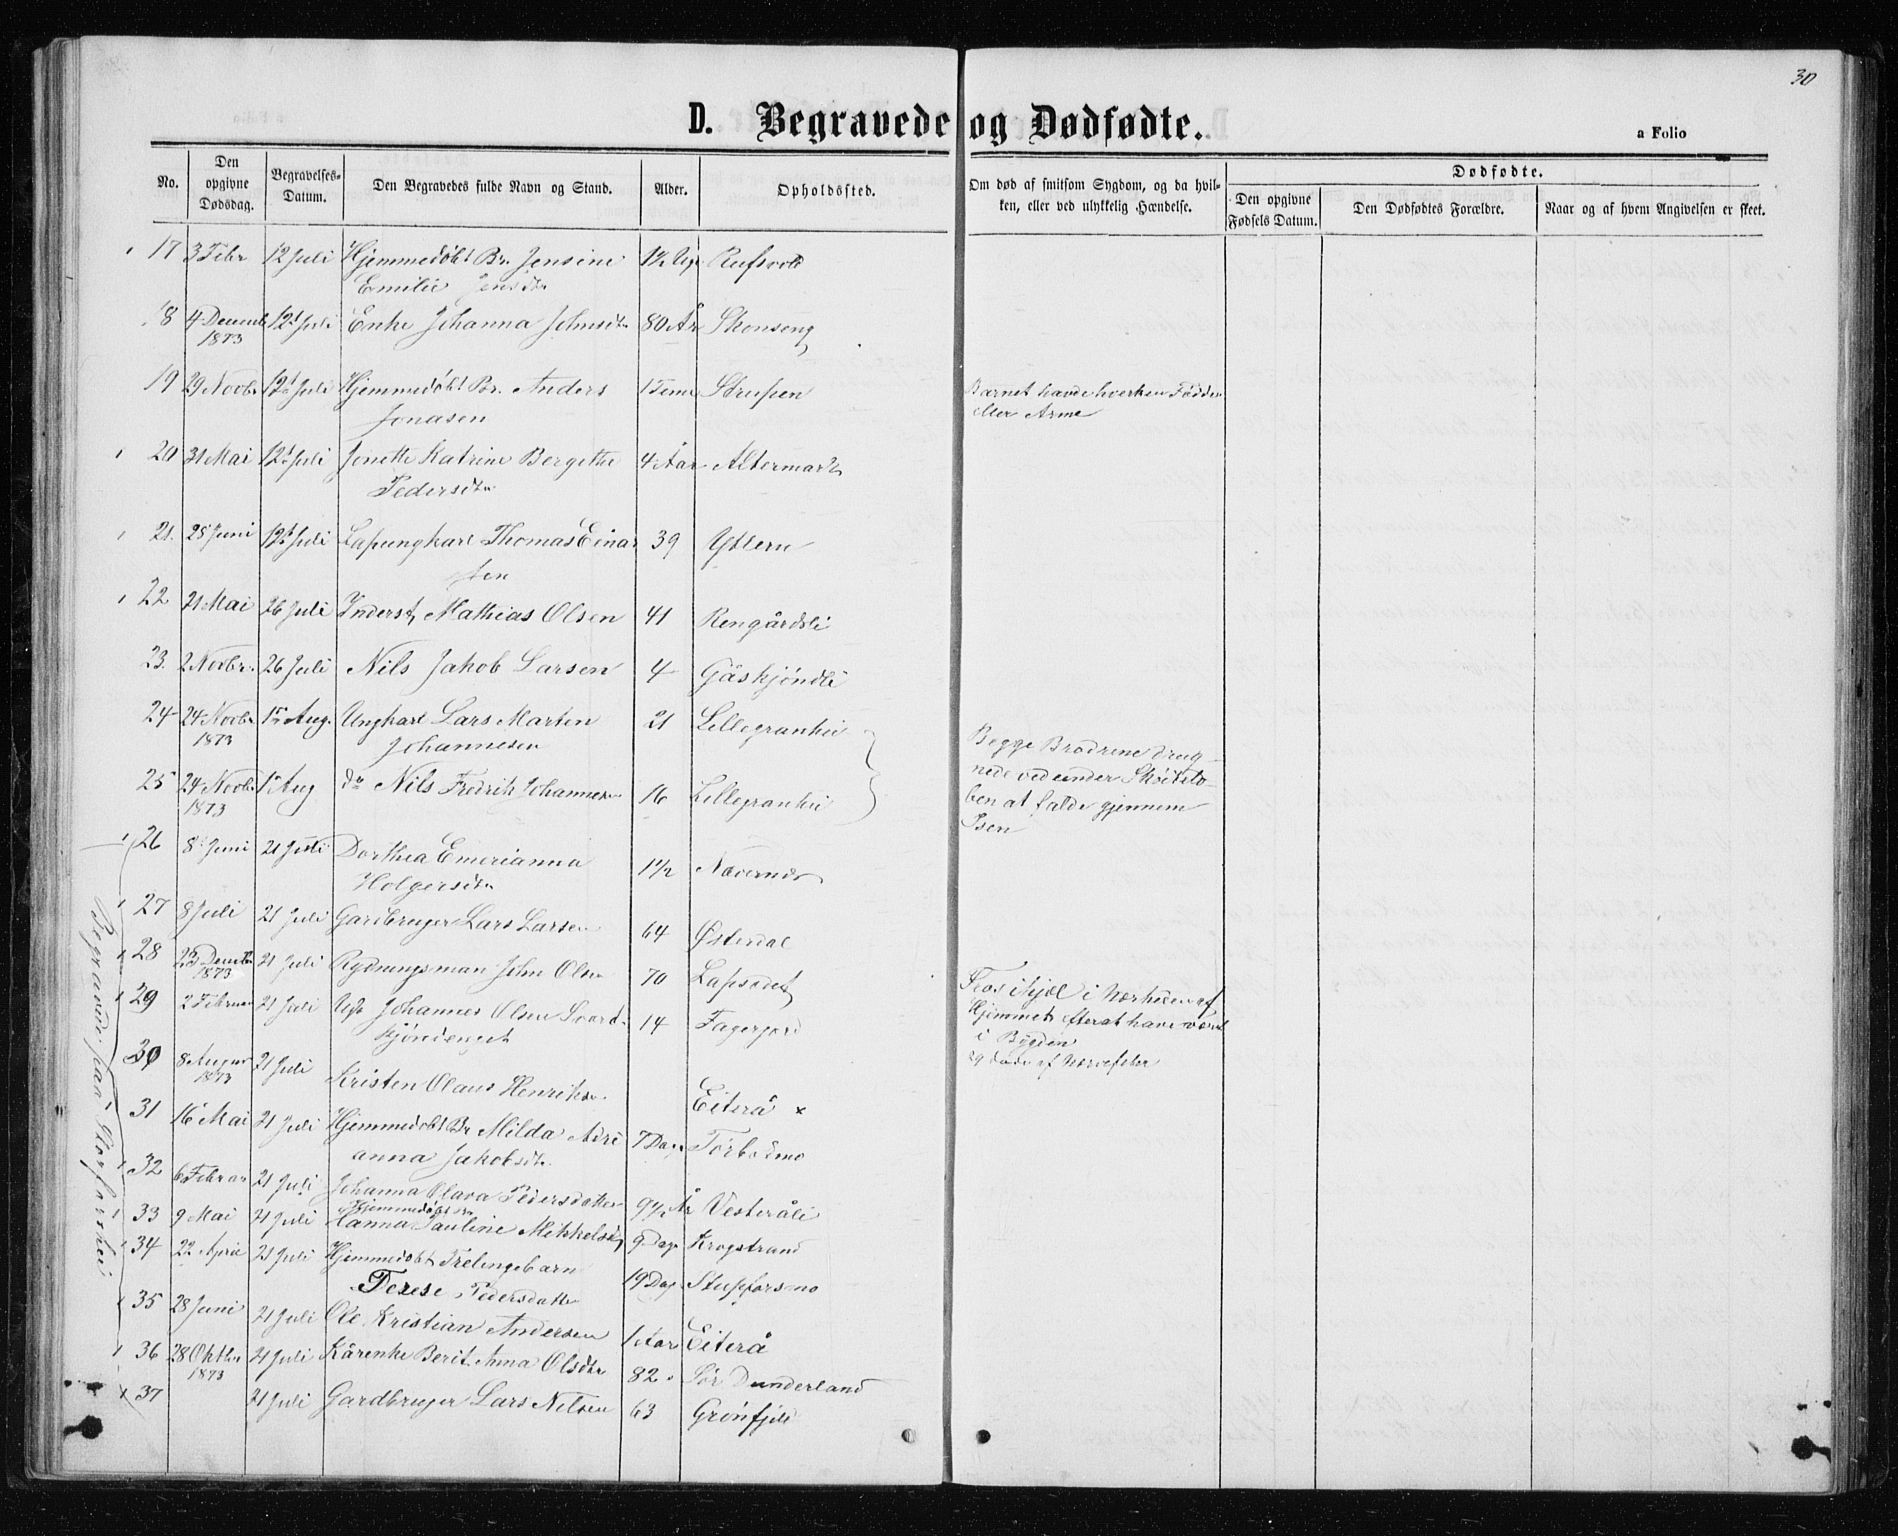 30
D. Begravede og Dødfødte.
a Folio
No.
Den opgivne Dødsdag.
Begravelses-Datum.
Den Begravedes fulde Navn og Stand.
Alder.
Opholdssted.
Om død af smitsom Sygdom, og da hvil-
ken, eller ved ulykkelig Hændelse.
Dødfødte.
Den opgivne Fødsels Datum.
Den Dødfødtes Forældre.
Naar og af hvem Angivelsen er skeet.
17 3 Febr 12 Juli Hjemmedøbt Br. Jensine 1½ Uge
Emilie Jensdtr
18 4 Decemb 12t Juli Enke Johanna Johnsdtr 80 År Skonseng
1873
19 29 Novbr 12t Juli Hjemmedøbt Br. Anders 1 Time Strupen Barnet havde hverken Fødder
Jonasen eller Arme
20 31 Mai 12t Juli Jonette Katrine Bergitte 4 Aar Altermark
Pedersdtr
21. 28 Juni 12t Juli Lapungkarl Thomas Einar 39 Ytteren
sen
22 21 Mai 26 Juli Inderst Mathias Olsen 41 Rengårdsli
23. 2 Novbr. 26 Juli Nils Jakob Larsen 4 Gåskjøndli
24 24 Novbr 1ste Aug. Ungkarl Lars Martin 21 Lillegranhei
1873 Johannesen
Begge Brødrene drug-
nede ved under Skøitelø-
25 24 Novbr 1 Aug do Nils Fredrik Johannesen 16 Lillegranhei
1873
ben at falde gjennem
Isen
26 8 Juni 21 Juli Dorthea Emerianna 1½ Nævernes
Holgersdtr
27 8 Juli 21 Juli Gardbruger Lars Larsen 64 Østerdal
28 23 Decemb 21 Juli Rydningsman John Olsen 70
1873
29 2 Februar 21 Juli Johannes Olsen Svart- 14 Fagerjord
kjøndenget
Frøs ihjel i Nærheden af
Hjemmet efterat have været
i Bygden
30 8 August 21 Juli Kristen Olaus Henriksen Eiterå x
1873
29 døde af Nervefeber
31 16 Mai 21 Juli Hjemmedøbt Br Milda Adri 7 Dage
anna Jakobsdtr.
32 6 Februar 21 Juli Johanna Olava Pedersdatter 9½ År Vesteråli
Hjemmedøbt Br
33 9 Mai 21 Juli Hanna Pauline Mikkelsd 9 Dage Krogstrand
34 22 April 21 Juli Hjemmedøbt Trelingebarn
Terese Pedersdatter 19 Dag Stupforsmo
35 28 Juni 21 Juli Ole Kristian Andersen 1 Aar Eiterå
36 28 Oktbr 21 Juli Kårenke Berit Anna Olsdtr 82 Sør Dunderland
1873
37 21 Juli Gardbruger Lars Nilsen 63 Grønfjeld
Begravede paa Storforshei